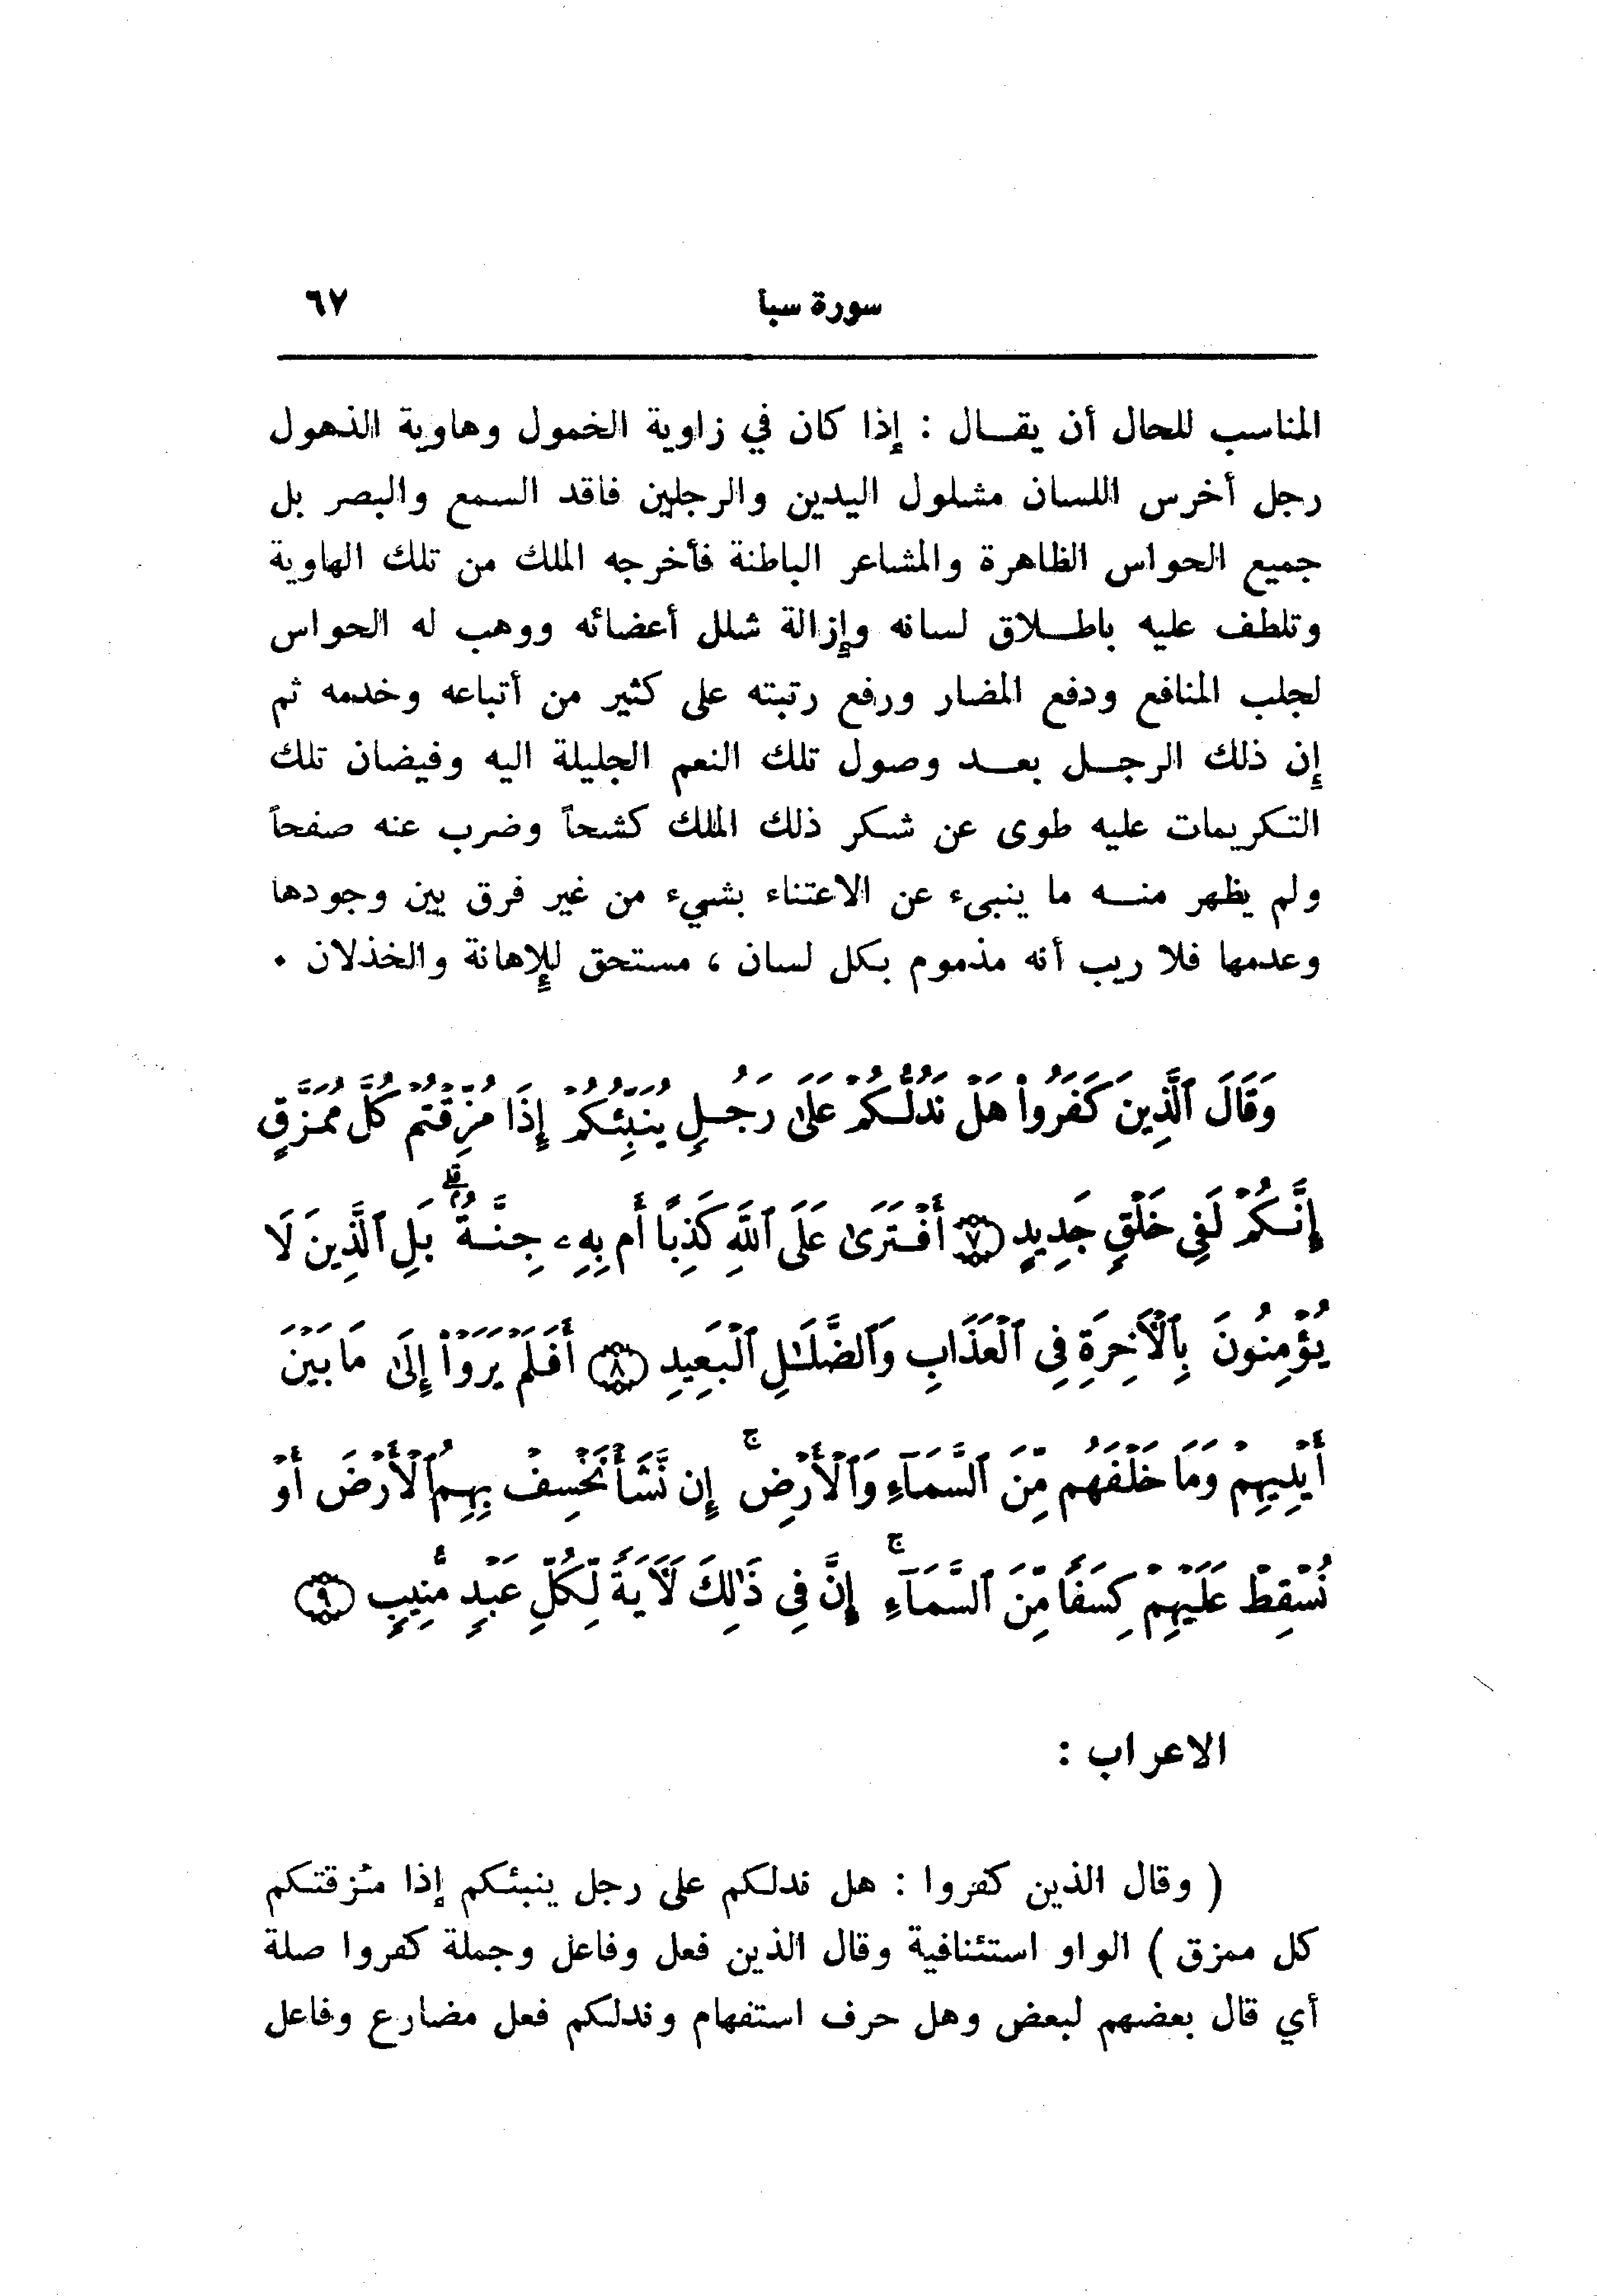 سورة سبأ ٦٧
المناسب للحال أن يقال : إذا كان في زاوية الخمول وهاوية الذهول
رجل أخرس اللسان مشلول اليدين والرجلين فاقد السمع والبصر بل
جميع الحواس الظاهرة والمشاعر الباطنة فأخرجه الملك من تلك الهاوية
وتلطف عليه باطلاق لسانه وإزالة شلل أعضائه ووهب له الحواس
لجلب المنافع ودفع المضار ورفع رتبته على كثير من أتباعه وخدمه ثم
إن ذلك الرجل بعد وصول تلك النعم الجليلة اليه وفيضان تلك
التكريمات عليه طوى عن شكر ذلك الملك كشحاً وضرب عنه صفحاً
ولم يظهر منه ما ينبىء عن الاعتناء بشيء من غير فرق بين وجودها
وعدمها فلا ريب أنه مذموم بكل لسان ، مستحق للإهانة والخذلان .
وَقَالَ ٱلَّذِينَ كَفَرُوا۟ هَلْ نَدُلُّكُمْ عَلَىٰ رَجُلٍ يُنَبِّئُكُمْ إِذَا مُزِّقْتُمْ كُلَّ مُمَزَّقٍ
إِنَّكُمْ لَفِى خَلْقٍ جَدِيدٍ ﴿٧﴾ أَفْتَرَىٰ عَلَى ٱللَّهِ كَذِبًا أَم بِهِۦ جِنَّةٌۗ بَلِ ٱلَّذِينَ لَا
يُؤْمِنُونَ بِٱلْأَخِرَةِ فِى ٱلْعَذَابِ وَٱلضَّلَـٰلِ ٱلْبَعِيدِ ﴿٨﴾ أَفَلَمْ يَرَوْا۟ إِلَىٰ مَا بَيْنَ
أَيْدِيهِمْ وَمَا خَلْفَهُم مِّنَ ٱلسَّمَآءِ وَٱلْأَرْضِۚ إِن نَّشَأْ نَخْسِفْ بِهِمُ ٱلْأَرْضَ أَوْ
نُسْقِطْ عَلَيْهِمْ كِسَفًا مِّنَ ٱلسَّمَآءِۚ إِنَّ فِى ذَٰلِكَ لَأَيَةً لِّكُلِّ عَبْدٍ مُّنِيبٍ ﴿٩﴾
الاعراب :
( وقال الذين كفروا : هل ندلكم على رجل ينبئكم إذا مُزقتكم
كل ممزق ) الواو استئنافية وقال الذين فعل وفاعل وجملة كفروا صلة
أي قال بعضهم لبعض وهل حرف استفهام وندلكم فعل مضارع وفاعل